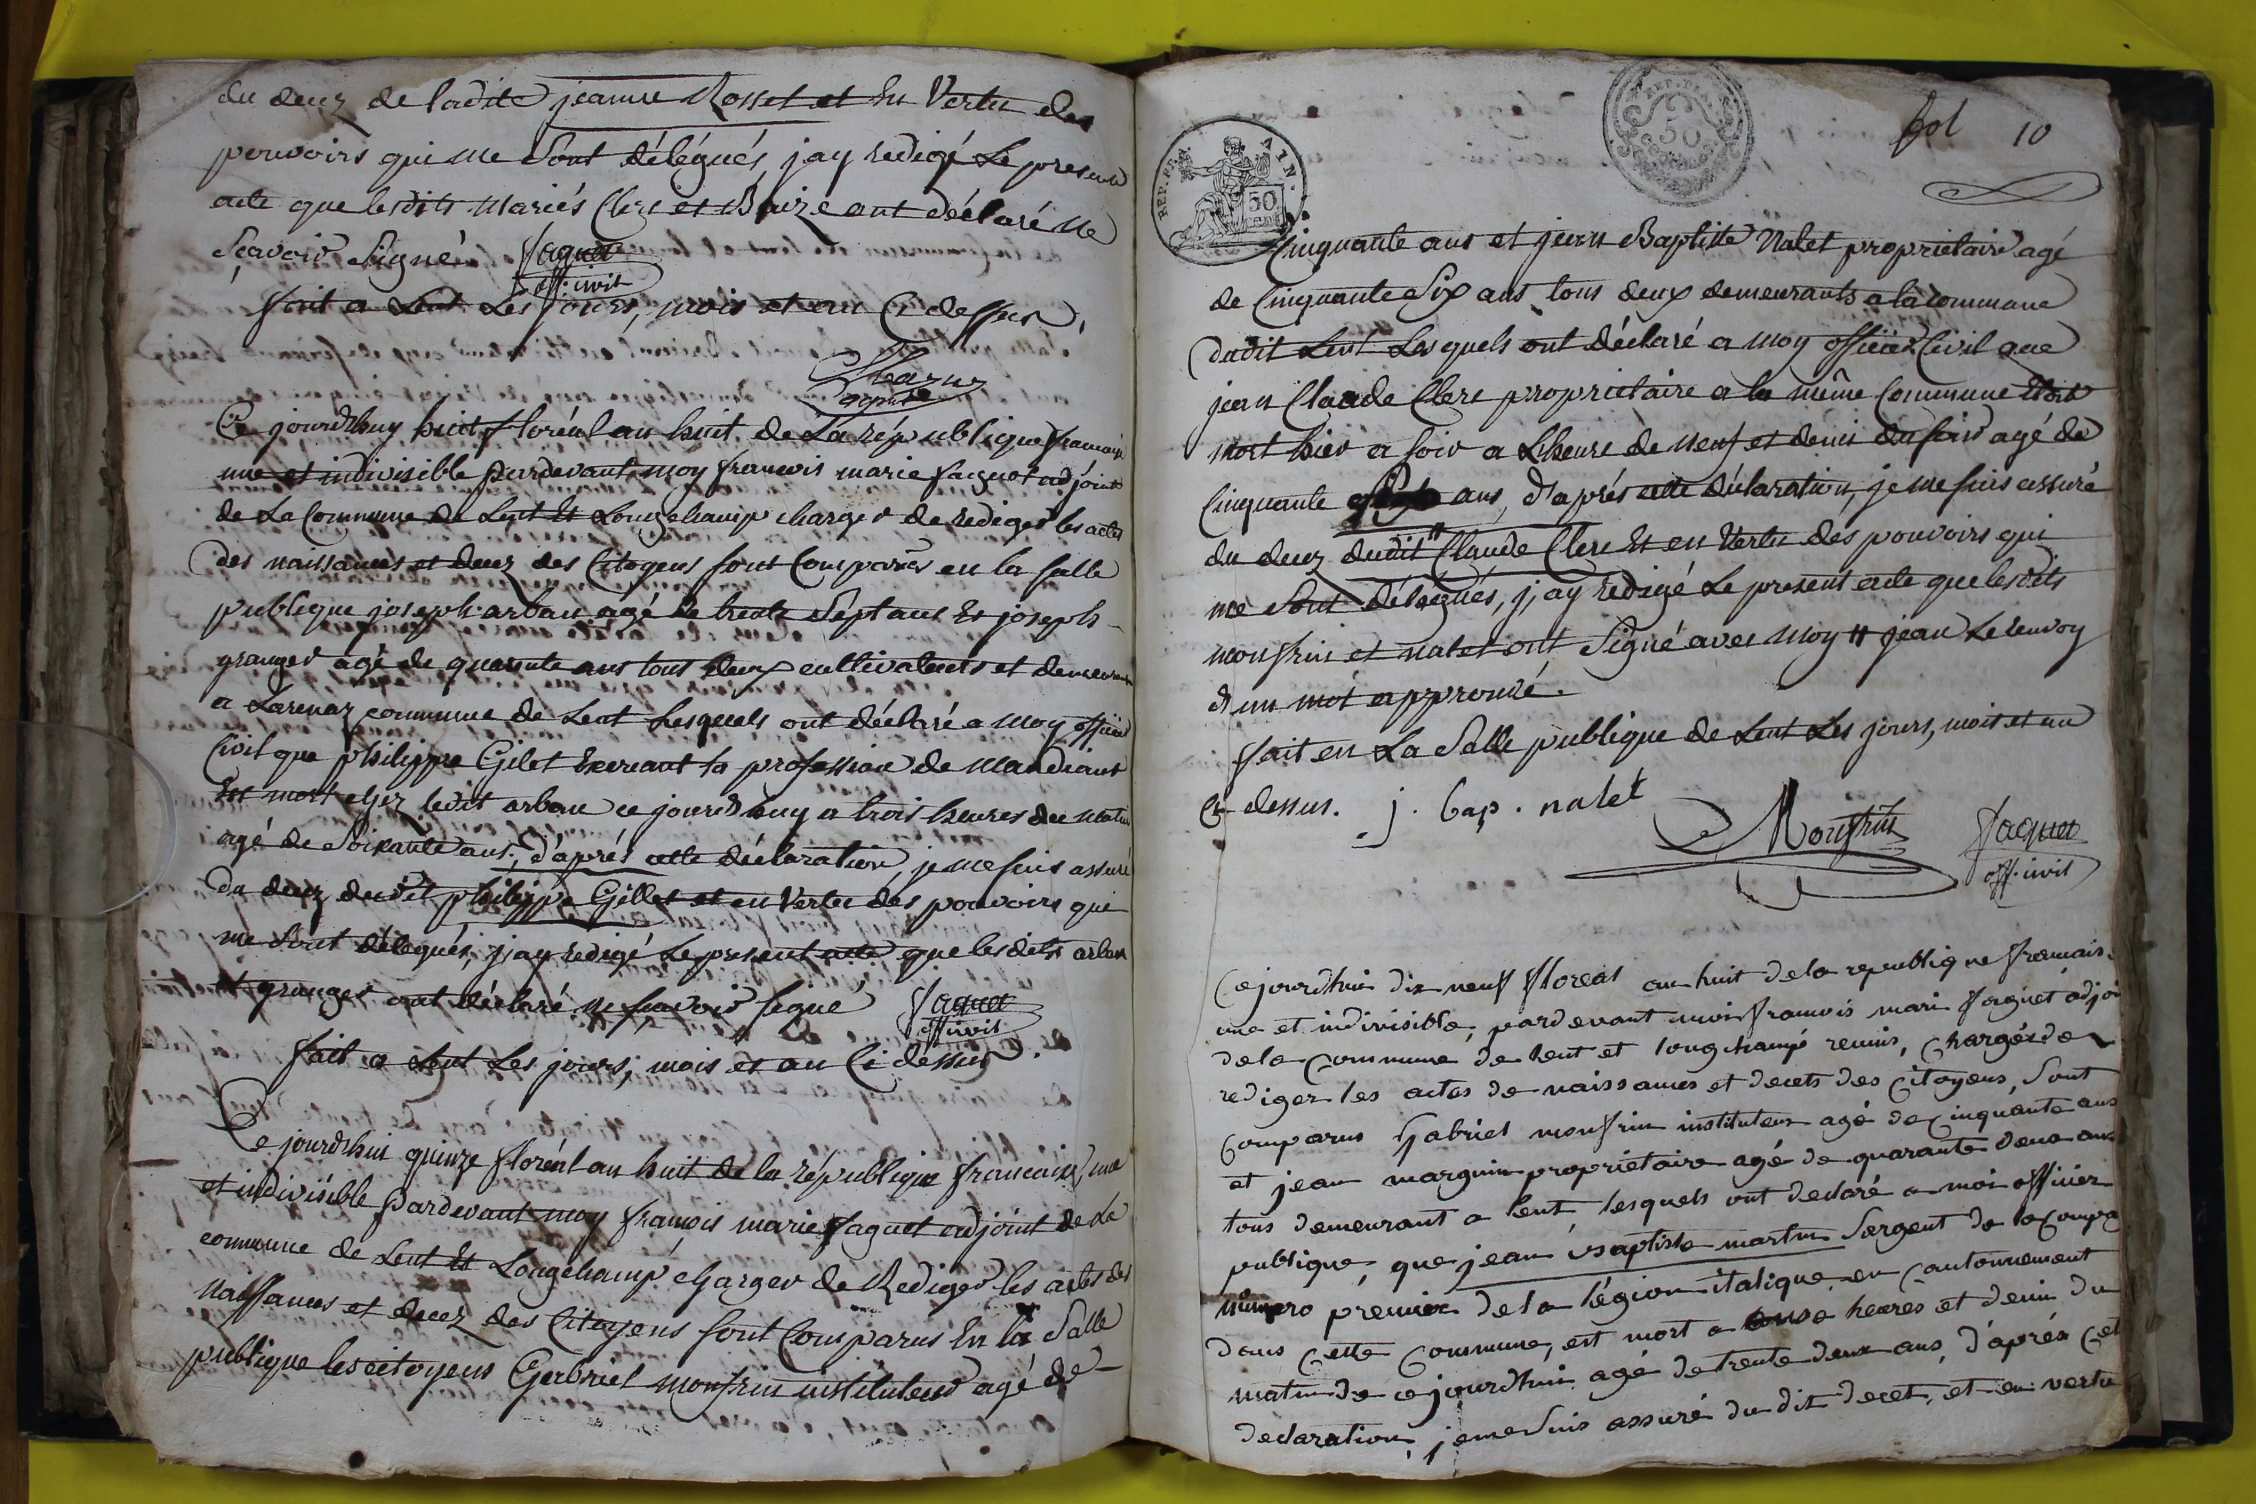 du decez de ladite jeanne Rosset et En Vertu des
pouvoirs qui me Sont délégués, j'ay redigé Le present
acte que lesdits Mariés Clerc et Buize ont déclaré Ne
Sçavoir Signé Faguet
off. civil
fait a Lent Les Jours, mois et an Ci dessus,
Ce jourd'huy huit floréal an huit de La république francaise
une et indivisible pardevant moy francois marie faguet adjoint
de La Commune de Lent Et Longchamp charger de rediger les actes
des naissances et decez des Citoyens sont Comparus en la salle
publique joseph arban agé de trente Sept ans Et joseph
granger agé de quarante ans tous deux cultivateurs et demeurants
a Larenaz commune de Lent Lesquels ont déclaré a moy officier
Civil que philippe Gilet Exercant la profession de Mandiant
Est mort chez ledit arban ce jourd'huy a trois heures du matin
agé de Soixante ans, d'aprés cette déclaration, je me suis assuré
Du decez dudit philippe Gillet et en Vertu des pouvoirs qui
me Sont délegués, j'ay redigé Le present acte que lesdits arban
et granger ont déclaré ne sçavoir signé Faguet
off. civil
fait a Lent Les jours, mois et an Ci dessus.
Ce jourd'hui quinze floréal an huit de la république francaise, une
et indivisible pardevant moy françois marie faguet adjoint de La
commune de Lent Et Longchamp charger de Rediger les actes des
Naissances et decez des Citoyens sont Comparus En la Salle
publique les citoyens Gabriel monfrin instituteur agé de
fol 10
REP. FRA. AIN.
50
Cent.
REP. FRA.
50
Cinquante ans et jean Baptiste Nalet proprietaire agé
de Cinquante Six ans tous deux demeurants a la commune
Dudit Lent Lesquels ont déclaré a moy officier Civil que
jean Claude Clerc proprietaire a la même Commune Etoit
mort hier a soir a Lheure de neuf et demi du soir agé de
Cinquante ans, d'aprés cette déclaration, je me suis assuré
du decez dudit # Claude Clerc Et en Vertu des pouvoirs qui
me Sont délégués, j'ay redigé Le present acte que lesdits
monfrin et nalet ont Signé avec Moy # jean Le renvoy
d'un mot approuvé.
fait en La Salle publique de Lent Les jours, mois et an
Ci dessus. j. bap. nalet Monfrin Faguet
off. civil
Cejourdhui dix neuf floreal an huit de la republique francaise
une et indivisible, pardevant moi francois mari faguet adjoi
de la Commune de lent et longchamp reunis, chargés de
rediger les actes de naissances et decets des Citoyens, Sont
comparus Gabriel monfrin instituteur agé de cinquante ans
et jean marguin proprietaire agé de quarante deux ans
tous demeurant a lent, lesquels ont declaré a moi officier
publique, que jean Baptiste martin Sergent de la compa
numero premier de la légion italique en cantonnement
dans cette Commune, est mort a onse heures et demi du
matin de cejourdhui agé de trente deux ans, d'aprés cet
declaration, jeme suis assuré du dit decet, et en vertu